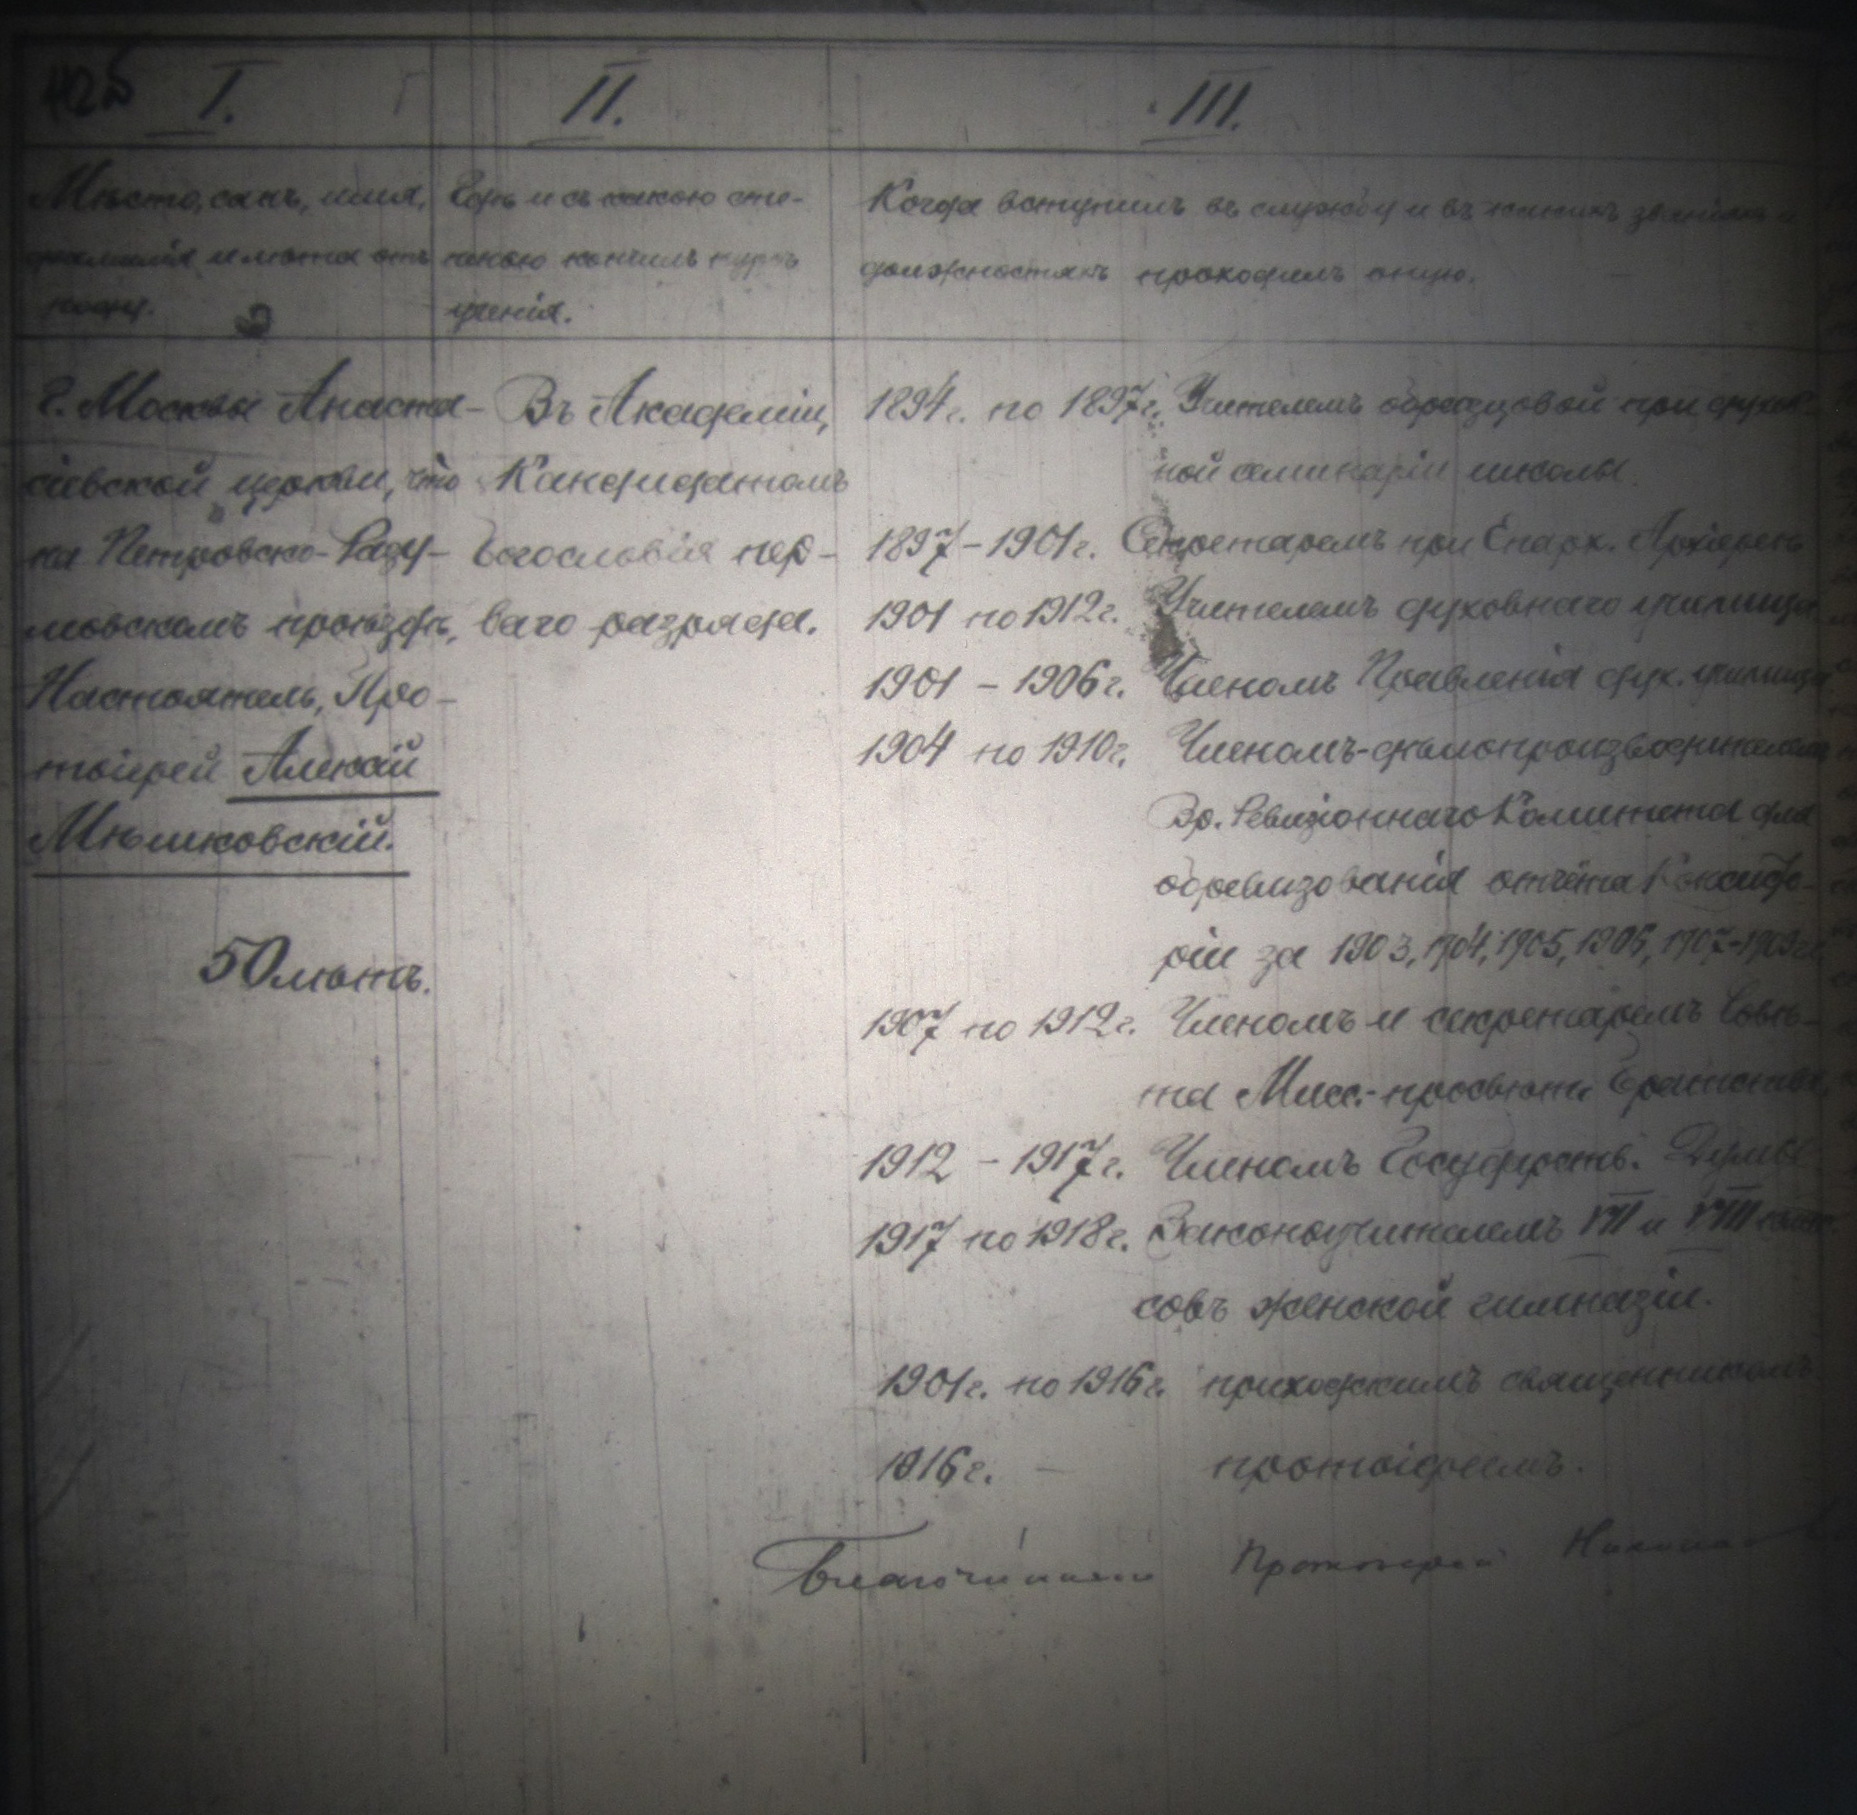 I. II. III.
Мѣсто, санъ, имя,
фамилія и лѣта отъ
роду.
Гдѣ и съ какою сте-
пенью кончилъ курсъ
ученія.
Когда вступилъ въ службу и въ какихъ званіяхъ и
должностяхъ проходилъ оную.
г. Москвы Анаста-
сіевской церкви, что
на Петровско-Разу-
мовскомъ проѣздѣ,
Настоятель, Про-
тоіерей Алексій
Мѣшковскій.
50 лѣтъ.
Въ Академіи,
Кандидатомъ
богословія пер-
ваго разряда.
1894 г. по 1897 г. Учителемъ образцовой при духов-
ной семинаріи школы
1897 - 1901 г. Секретаремъ при Епарх. Архіереѣ
1901 по 1912 г. Учителемъ духовнаго училища
1901 - 1906 г. Членомъ Правленія дух. училища
1904 по 1910 г. Членомъ-дѣлопроизводителемъ
Вр. Ревизіоннаго Комитета для
обревизованія отчёта Консисто-
ріи за 1903, 1904, 1905, 1906, 1907-1909 г.
1907 по 1912 г. Членомъ и секретаремъ Совѣ-
та Мисс.-просвѣт. Братства.
1912 - 1917 г. Членомъ Государств. Думы
1917 по 1918 г. Законоучителемъ VII и VIII клас-
совъ женской гимназіи.
1901 г. по 1916 г. приходскимъ священникомъ
1916 г. - протоіереемъ.
Благочинный Протоіерей Николай